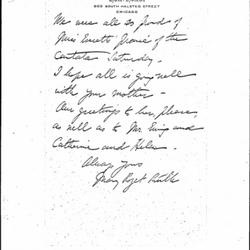 800 SOUTH HALSTED STREET
CHICAGO
We were all so proud of
Miss Everett's of the
Cantata Saturday.
I hope all is going well
with your mother -
Our greetings to her, please,
as well as to Mr. Ewing and
Catherine and Helen.
Always yours
Mary Rozet Smith